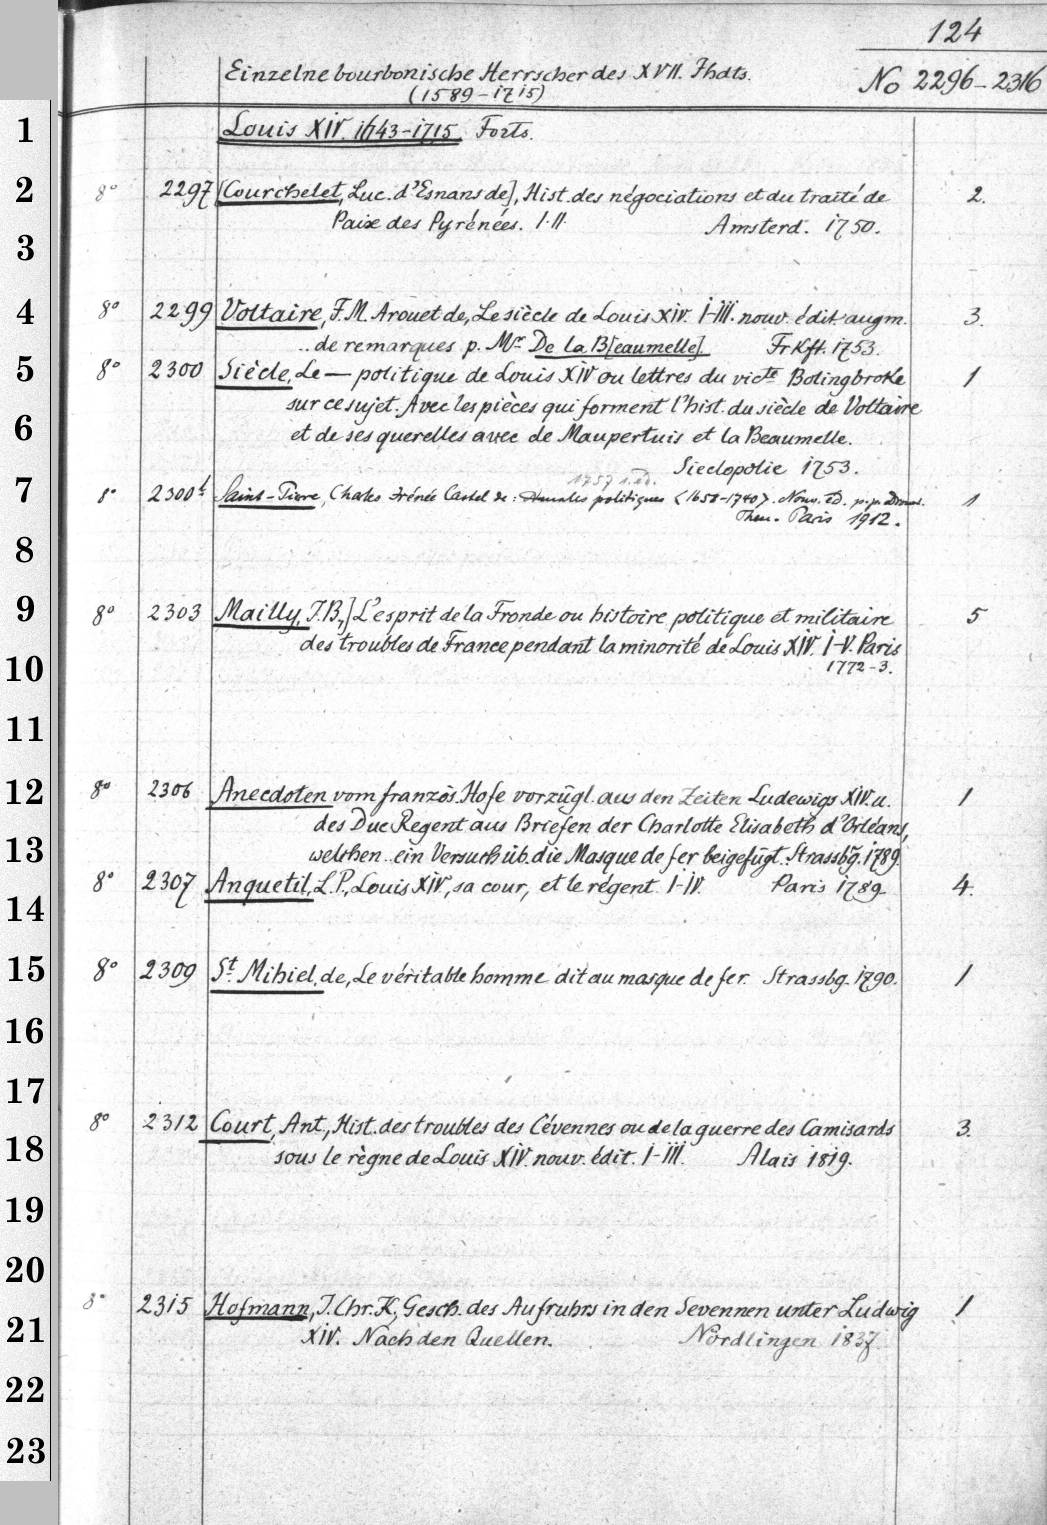 124
Einzelne bourbonische Herrscher des XVII. Jhdts. No 2296-2316
(1589-1715)
1 Louis XIV. 1643-1715. Forts.
2 8° 2297 [Courchetet, Luc. d'Esnans de], Hist. des négociations et du traité de 2.
Paix des Pyrénées. I-II. Amsterd. 1750.
3
4 8° 2299 Voltaire, F.M. Arouet de, Le siècle de Louis XIV. I-III. nouv. édit. augm. 3.
.. de remarques p. Mr De la B[eaumelle]. Frkft. 1753.
5 8° 2300 Siècle, Le — politique de Louis XIV ou lettres du victe Bolingbroke 1
sur ce sujet. Avec les pièces qui forment l'hist. du siècle de Voltaire
6 et de ses querelles avec de Maupertuis et la Beaumelle.
Sieclopolie 1753.
1757 1. éd.
7 8° 2300t Saint-Pierre, Charles Irénée Castel de: Annales politiques (1658-1740). Nouv. éd. p. p. 1
Paris 1912.
8
9 8° 2303 Mailly, J.B.,] L'esprit de la Fronde ou histoire politique et militaire 5
des troubles de France pendant la minorité de Louis XIV. I-V. Paris
10 1772-3.
11
12 8° 2306 Anecdoten vom französ. Hofe vorzügl. aus den Zeiten Ludewigs XIV. u. 1
des Duc Regent aus Briefen der Charlotte Elisabeth d'Orléans,
13 welchen .. ein Versuch üb. die Masque de fer beigefügt. Strassbg. 1789.
8° 2307 Anquetil, L.P., Louis XIV, sa cour, et le régent. I-IV. Paris 1789 4.
14
15 8° 2309 St. Mihiel, de, Le véritable homme dit au masque de fer. Strassbg. 1790. 1
16
17
8° 2312 Court, Ant., Hist. des troubles des Cévennes ou de la guerre des Camisards 3.
18 sous le règne de Louis XIV. nouv. édit. I-III. Alais 1819.
19
20
8° 2315 Hofmann, J. Chr. K., Gesch. des Aufruhrs in den Sevennen unter Ludwig 1
21 XIV. Nach den Quellen. Nördlingen 1837
22
23